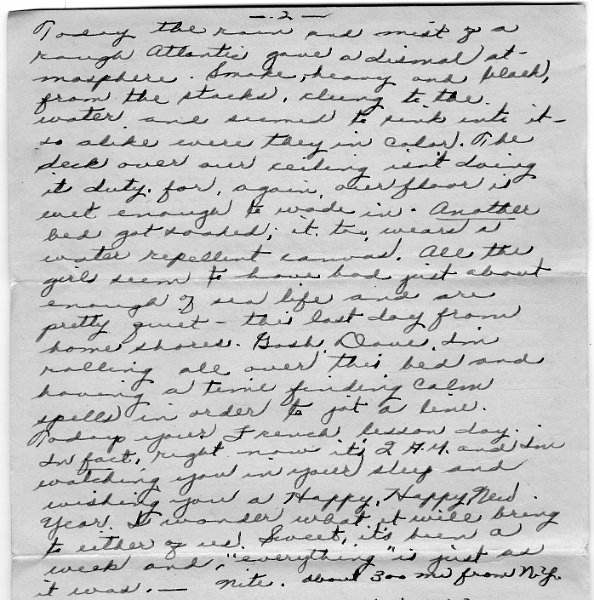 — 2 —
Today the rain and mist of a
rough Atlantic gave a dismal at-
mosphere. Smoke, heavy and black,
from the stacks, clung to the
water and seemed to sink into it –
so alike were they in color. The
deck over our ceiling isn't doing
it duty for, again, our floor is
wet enough to wade in. Another
bed got soaked; it, too, wears a
water repellent canvas. All the
girls seem to have had just about
enough of sea life and are
pretty quiet – this last day from
home shores. Gosh, Dave, I'm
rolling all over this bed and
having a time finding calm
spells in order to jot a line.
Today's your French lesson day.
In fact, right now it's 2 A.M. and I'm
watching you in your sleep and
wishing you a Happy, Happy New
Year. I wonder what it will bring
to either of us. Sweet, it's been a
week and, "everything" is just as
it was. — Nite. about 300 mi from N.Y.